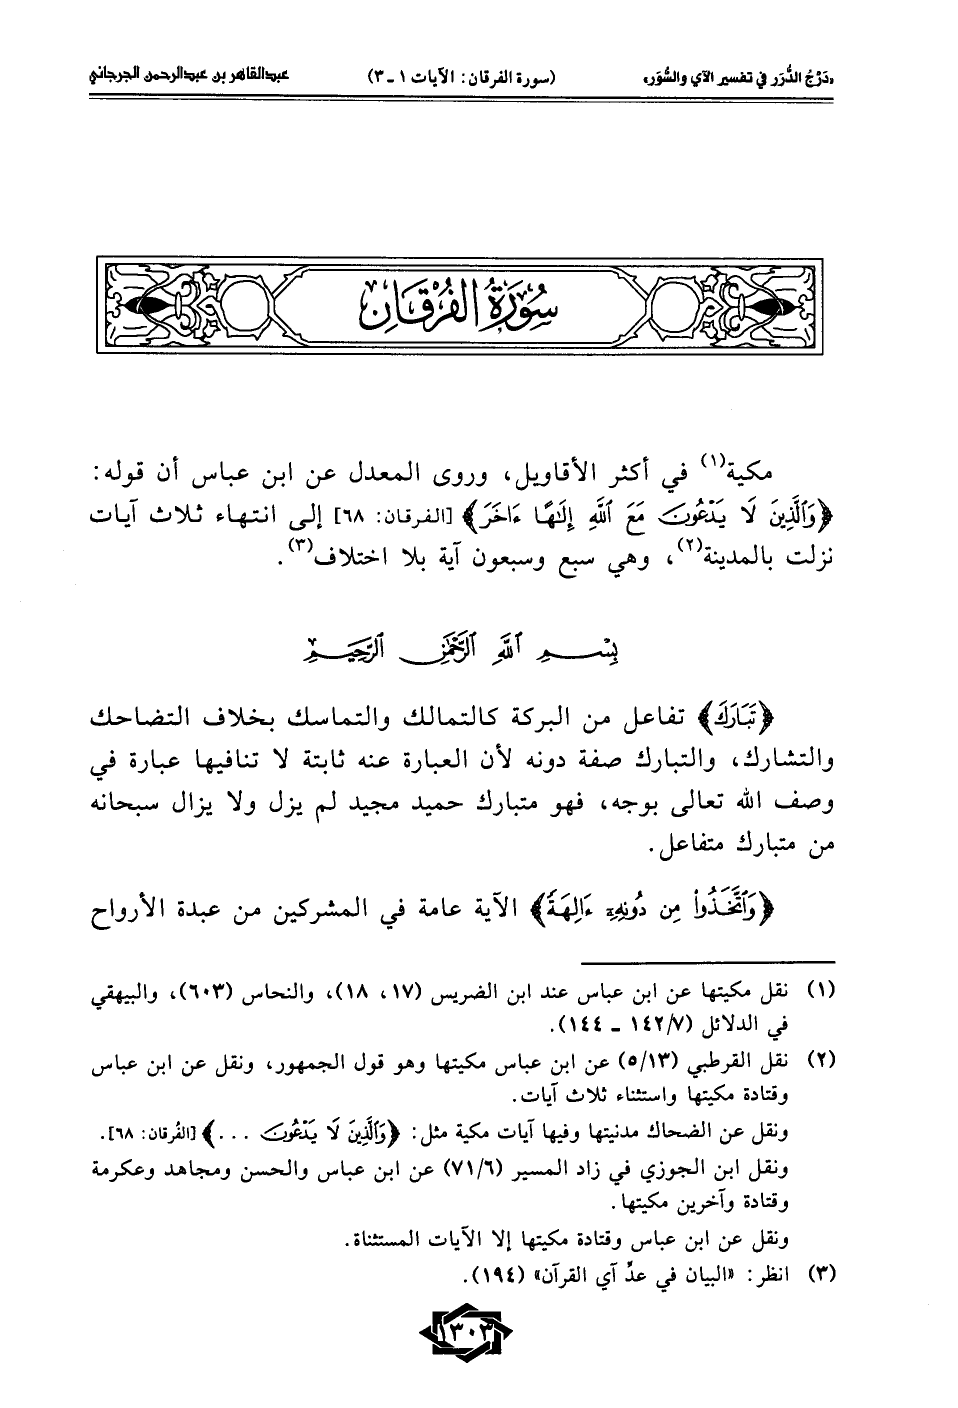 «دَرْجُ الدُّرَر في تفسير الآي والسُّوَر»
(سورة الفرقان: الآيات ١ ـ ٣)
عبدالقاهر بن عبدالرحمن الجرجاني
سُورَةُ الفُرْقَانِ
مكية(١) في أكثر الأقاويل، وروى المعدل عن ابن عباس أن قوله:
﴿وَٱلَّذِينَ لَا يَدْعُونَ مَعَ ٱللَّهِ إِلَٰهًا ءَاخَرَ﴾ [الفرقان: ٦٨] إلى انتهاء ثلاث آيات
نزلت بالمدينة(٢)، وهي سبع وسبعون آية بلا اختلاف(٣).
بِسْمِ ٱللَّهِ ٱلرَّحْمَٰنِ ٱلرَّحِيمِ
﴿تَبَارَكَ﴾ تفاعل من البركة كالتمالك والتماسك بخلاف التضاحك
والتشارك، والتبارك صفة دونه لأن العبارة عنه ثابتة لا تنافيها عبارة في
وصف الله تعالى بوجه، فهو متبارك حميد مجيد لم يزل ولا يزال سبحانه
من متبارك متفاعل.
﴿وَٱتَّخَذُوا۟ مِن دُونِهِۦٓ ءَالِهَةً﴾ الآية عامة في المشركين من عبدة الأرواح
(١) نقل مكيتها عن ابن عباس عند ابن الضريس (١٧، ١٨)، والنحاس (٦٠٣)، والبيهقي
في الدلائل (١٤٢/٧ ـ ١٤٤).
(٢) نقل القرطبي (٥/١٣) عن ابن عباس مكيتها وهو قول الجمهور، ونقل عن ابن عباس
وقتادة مكيتها واستثناء ثلاث آيات.
ونقل عن الضحاك مدنيتها وفيها آيات مكية مثل: ﴿وَٱلَّذِينَ لَا يَدْعُونَ ...﴾ [الفُرقان: ٦٨].
ونقل ابن الجوزي في زاد المسير (٧١/٦) عن ابن عباس والحسن ومجاهد وعكرمة
وقتادة وآخرين مكيتها.
ونقل عن ابن عباس وقتادة مكيتها إلا الآيات المستثناة.
(٣) انظر: «البيان في عدِّ آي القرآن» (١٩٤).
١٣٠٣